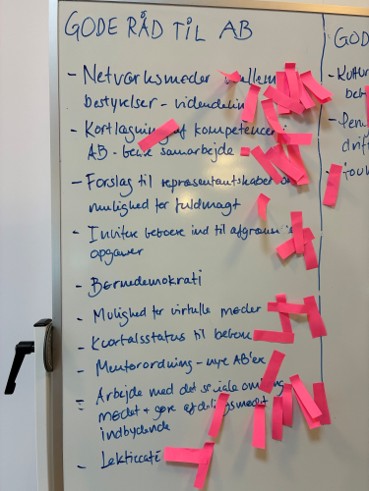 GODE RÅD TIL AB
- Netværksmøder mellem
bestyrelser - videndeling
- Kortlægning af kompetencer i
AB - bedre samarbejde
- Forslag til repræsentantskabet
mulighed for fuldmagt
- Invitere beboere ind til afgrænsede
opgaver
- Børnedemokrati
- Mulighed for virtuelle møder
- Kvartalsstatus til beboere
- Mentorordning - nye AB'er
- Arbejde med det sociale omkring
mødet + gøre afdelingsmødet
indbydende
- Lektiecafé
GOD
- Kultur
beb
drift